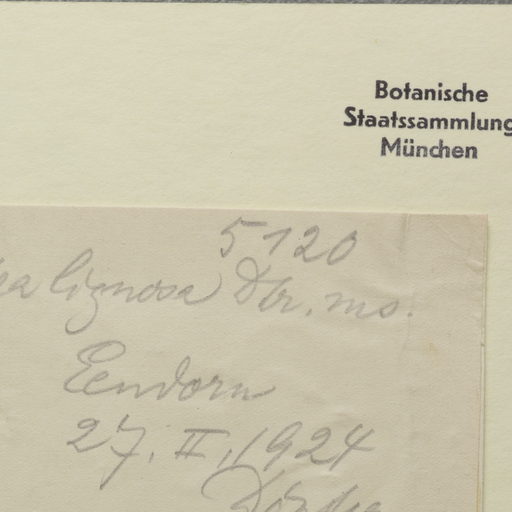 Botanische
Staatssammlung
München
5120
lignosa Dtr. ms.
Eendorn
27. II. 1924